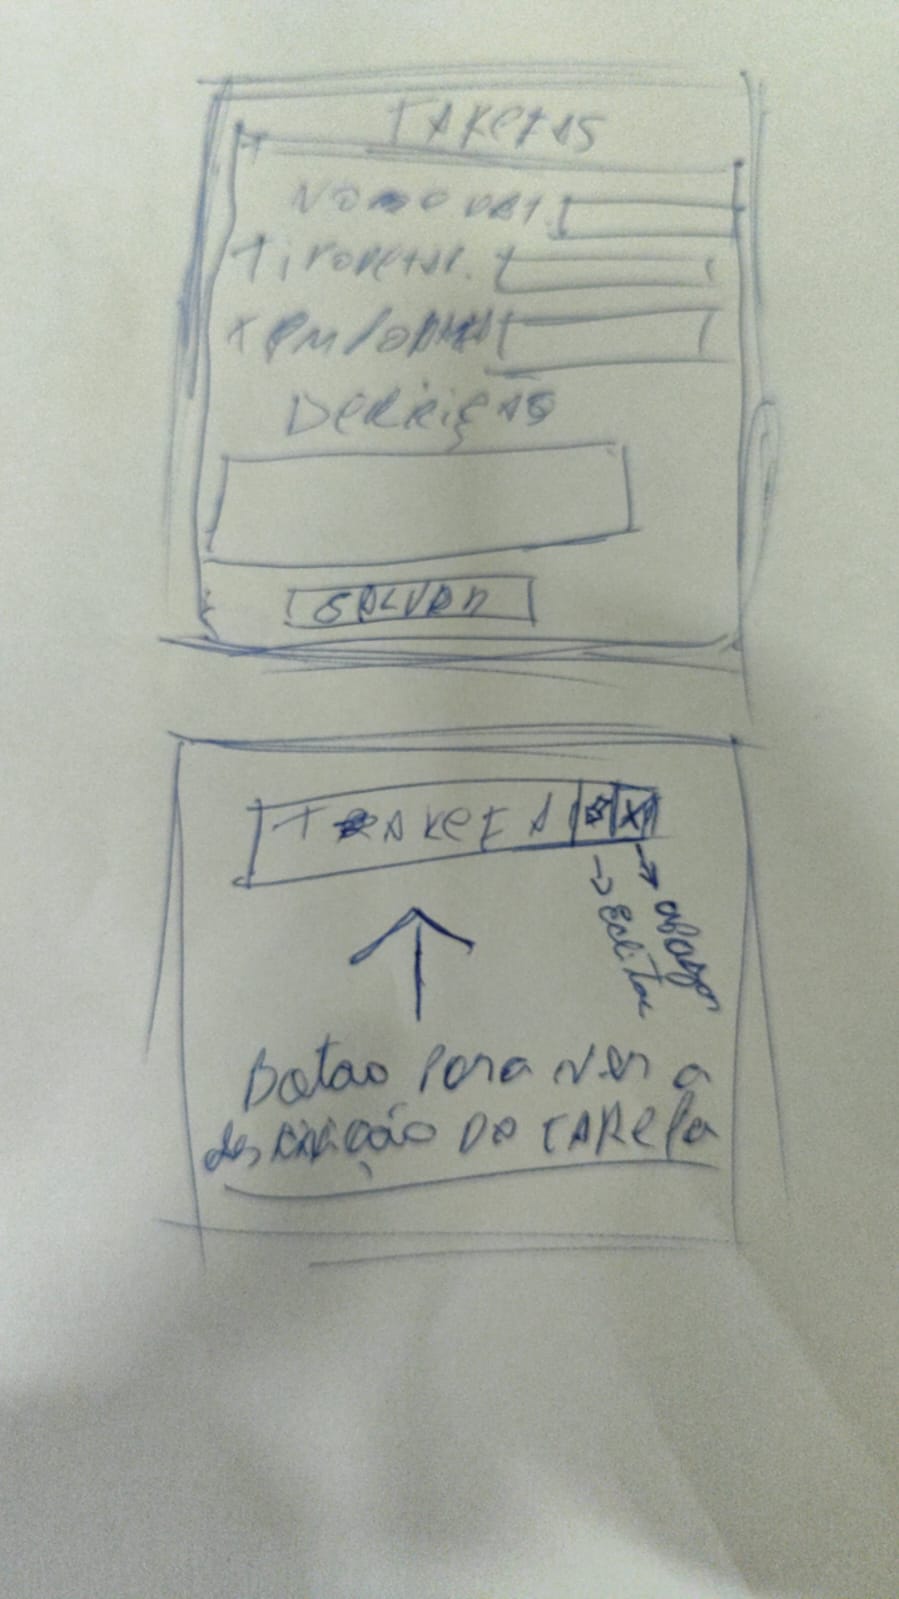 TAREFAS
NOME DA T.
TIPO DE TAR.
DESRIÇÃO
SALVAR
TAREFA X
→ Editar
→ apagar
Botao Para ver a
descrição DA TAREFA